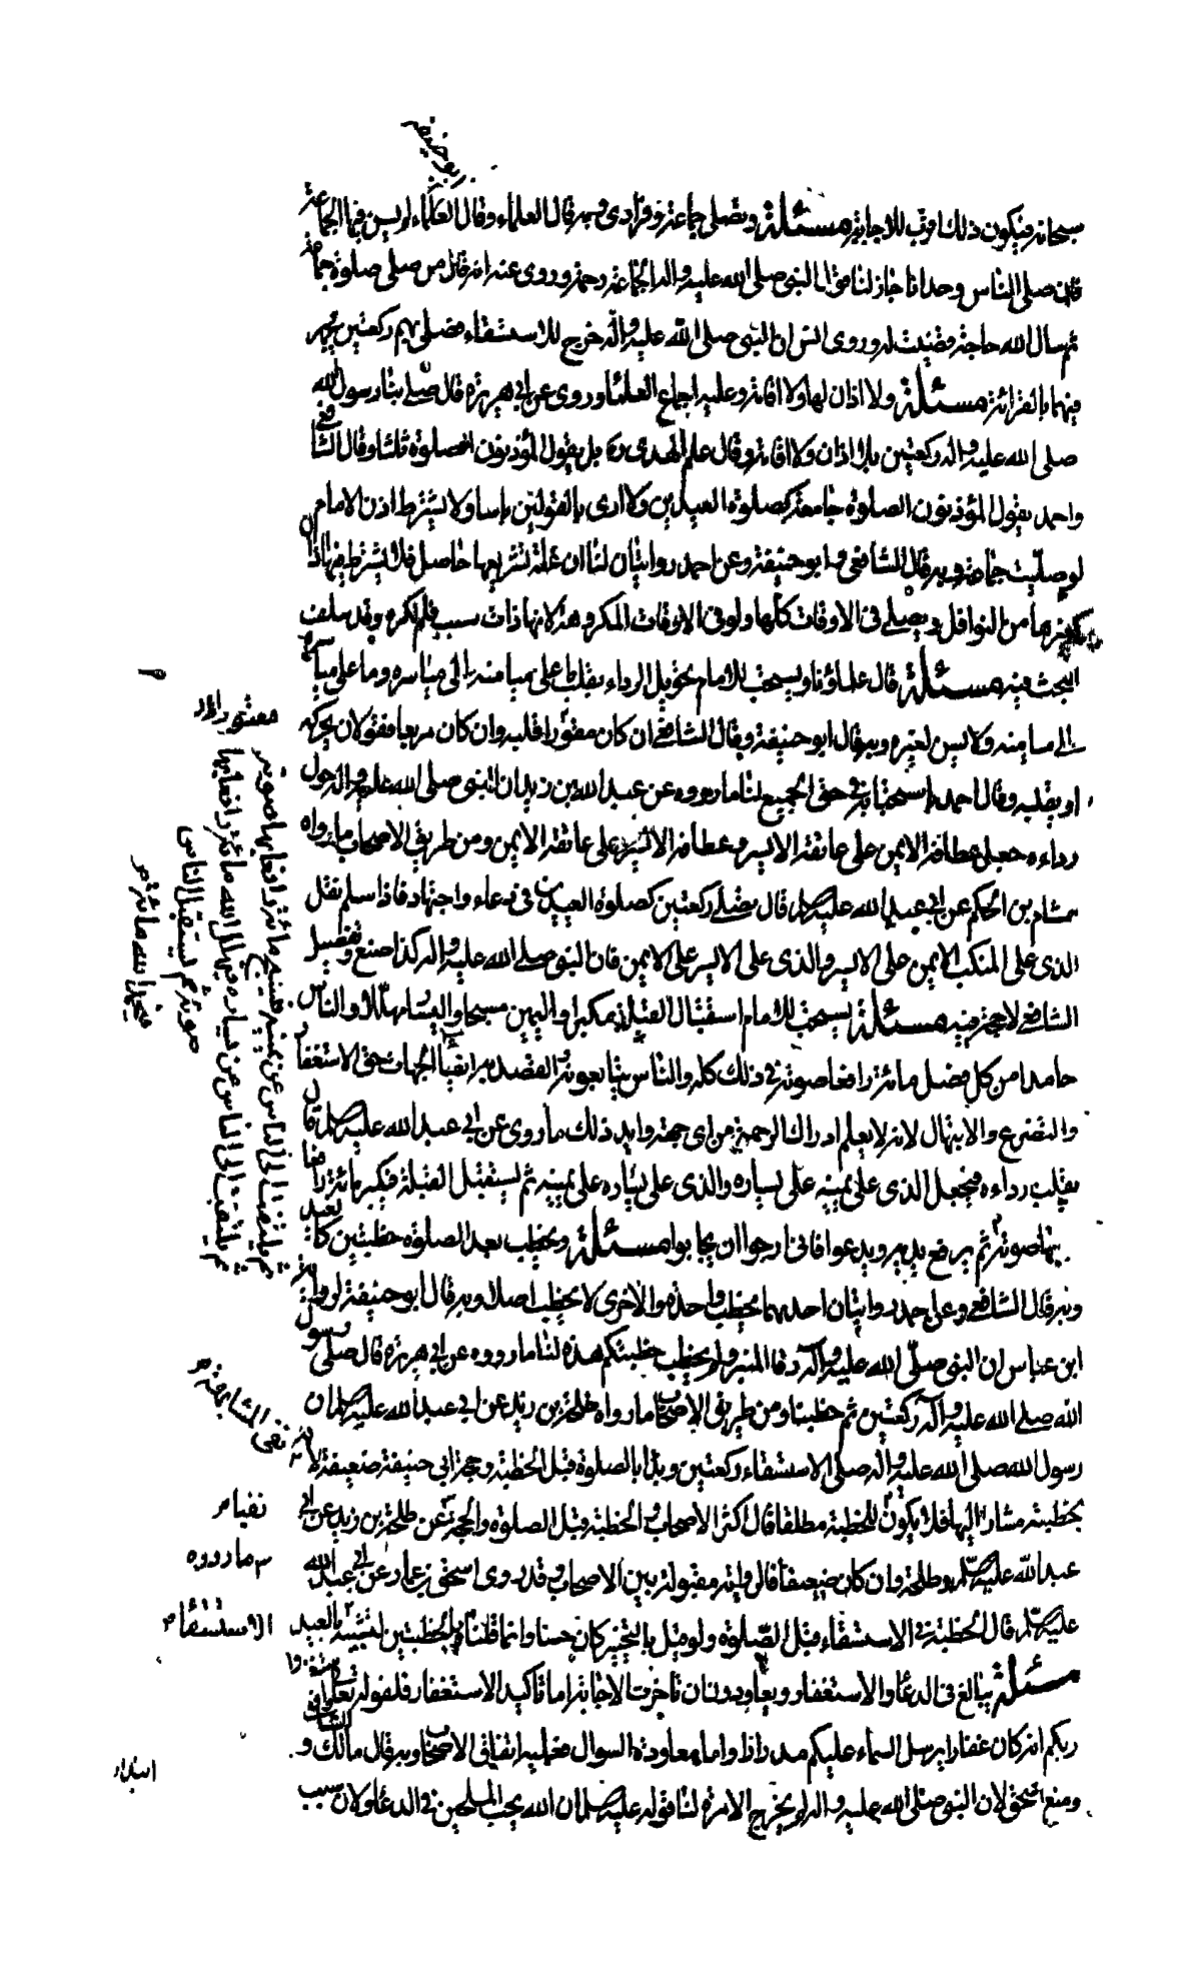 سبحانه فيكون ذلك اقرب للاجابة مسئلة وتصلى جماعة وفرادى وبه قال العلماء وقال ليس فيها الجماعة
فان صلى الناس وحدانا جاز لنا قول النبى صلى الله عليه واله الجماعة رحمة وروى عنه انه قال من صلى صلوة جماعة
ثم سال الله حاجة قضيت له وروى انس ان النبى صلى الله عليه واله خرج للاستسقاء فصلى بهم ركعتين يجهر
فيهما بالقرائة مسئلة ولا اذان لها ولا اقامة وعليه اجماع العلماء وروى عن ابي هريرة قال صلى بنا رسول الله
صلى الله عليه واله ركعتين بلا اذان ولا اقامة وقال علم الهدى ره بل يقول المؤذنون الصلوة ثلثا وقال الشافعى
واحمد يقول المؤذنون الصلوة جامعة كصلوة العيدين ولا ارى بالقولين باسا ولا يشترط اذن الامام
لو صليت جماعة وبه قال الشافعى وابو حنيفة وعن احمد روايتان لنا ان علة تشريعها حاصل فلا يشترط فيها الاذن
كغيرها من النوافل ويصلى فى الاوقات كلها ولو فى الاوقات المكروهة لانها ذات سبب فلم تكره وقد سلف
البحث فيه مسئلة قال علماؤنا ويستحب للامام تحويل الرداء بقلب ما على ميامنه الى مياسره وما على مياسره
الى ميامنه ولا يسن لغيره وبه قال ابو حنيفة وقال الشافعى ان كان مقورا قلبه وان كان مربعا فقولان يحركه
او يقلبه وقال احمد باستحبابه فى حق الجميع لنا ما رووه عن عبد الله بن زيد ان النبى صلى الله عليه واله حول
رداءه وجعل عطافه الايمن على عاتقه الايسر وعطافه الايسر على عاتقه الايمن ومن طريق الاصحاب ما رواه
هشام بن الحكم عن ابي عبد الله عليه السلم قال يصلى ركعتين كصلوة العيدين فى دعاء واجتهاد فاذا سلم نقل
الذى على المنكب الايمن على الايسر والذى على الايسر على الايمن فان النبى صلى الله عليه واله كذا صنع وتفصيل
الشافعى لا حجة فيه مسئلة يستحب للامام استقبال القبلة مكبرا واليمين مسبحا واليسار مهللا والناس
حامدا من كل فصل مائة رافعا صوته فى ذلك كله والناس يتابعونه القصد مراقبة الجهات بحق الاستغفار
والتضرع والابتهال لانه لا يعلم ادراك الرحمة من اى جهة وايد ذلك ما روى عن ابي عبد الله عليه السلم قال
يقلب رداءه فيجعل الذى على يمينه على يساره والذى على يساره على يمينه ثم يستقبل القبلة فيكبر مائة رافعا
بها صوته ثم يرفع يديه ويدعوا فانى ارجوا ان يجابوا مسئلة ويخطب بعد الصلوة خطبتين كالعيد
وبه قال الشافعى وعن احمد روايتان احدهما يخطب واحدة والاخرى لا يخطب اصلا وبه قال ابو حنيفة لرواية
ابن عباس ان النبى صلى الله عليه واله رقا المنبر ولم يخطب خطبتكم هذه لنا ما رووه عن ابي هريرة قال صلى رسول
الله صلى الله عليه واله ركعتين ثم خطبنا ومن طريق الاصحاب ما رواه طلحة بن زيد عن ابي عبد الله عليه السلم ان
رسول الله صلى الله عليه واله صلى الاستسقاء ركعتين وبدا بالصلوة قبل الخطبة وحجة ابي حنيفة ضعيفة لانه
بخطبته مشار اليها فلا يكون للخطبة مطلقا قال اكثر الاصحاب والخطبة قبل الصلوة والحجة عن طلحة بن زيد عن ابي
عبد الله عليه السلم وطلحة وان كان ضعيفا فالرواية مقبولة بين الاصحاب وقد روى اسحق بن عمار عن ابي عبد الله
عليه السلم قال الخطبة فى الاستسقاء قبل الصلوة ولو قيل بالتخيير كان حسنا وانما قلنا بالخطبتين لتشبيه بالعيد
مسئلة يبالغ فى الدعاء والاستغفار ويعاودون ان تاخرت الاجابة اما تاكيد الاستغفار فلقوله تعالى استغفروا
ربكم انه كان غفارا يرسل السماء عليكم مدرارا واما معاودة السوال فعليه اتفاق الاصحاب وبه قال مالك والشافعى
ومنع اسحق لان النبى صلى الله عليه واله لم يخرج الا مرة لنا قوله عليه السلم ان الله يحب الملحين فى الدعاء ولان سبب
ابو حنيفة
معتبر
ثم يلتفت الى الناس عن يمينه فيسبح مائة رافعا بها صوته
ثم يلتفت الى الناس عن يساره فيهلل الله مائة رافعا بها
صوته ثم يستقبل الناس
فيحمد الله مائة
نفى المشابهة
نفيا
ما رووه
الاستسقاء
ابتداء